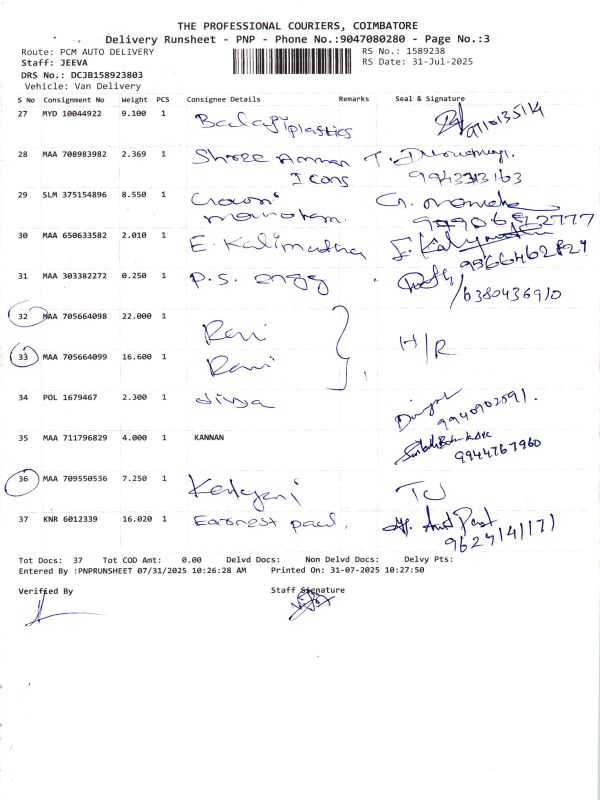 THE PROFESSIONAL COURIERS, COIMBATORE
Delivery Runsheet - PNP - Phone No.:9047080280 - Page No.:3
Route: PCM AUTO DELIVERY RS No.: 1589238
Staff: JEEVA RS Date: 31-Jul-2025
DRS No.: DCJB158923803
Vehicle: Van Delivery
S No Consignment No Weight PCS Consignee Details Remarks Seal & Signature
27 MYD 10044922 9.100 1 Balaji plastics
28 MAA 708983982 2.369 1 Shree Amman T.
Icons
29 SLM 375154896 8.550 1 Crown
30 MAA 650633582 2.010 1 E. Kalimuthu
9566462829
31 MAA 303382272 0.250 1 P.S. engg
6380436910
32 MAA 705664098 22.000 1 Ravi
H/R
33 MAA 705664099 16.600 1 Ravi
34 POL 1679467 2.300 1 divya
9940902591.
35 MAA 711796829 4.000 1 KANNAN
9944767960
36 MAA 709550536 7.250 1
37 KNR 6012339 16.020 1 Earnest paul.
9624141171
Tot Docs: 37 Tot COD Amt: 0.00 Delvd Docs: Non Delvd Docs: Delvy Pts:
Entered By :PNPRUNSHEET 07/31/2025 10:26:28 AM Printed On: 31-07-2025 10:27:50
Verified By Staff Signature